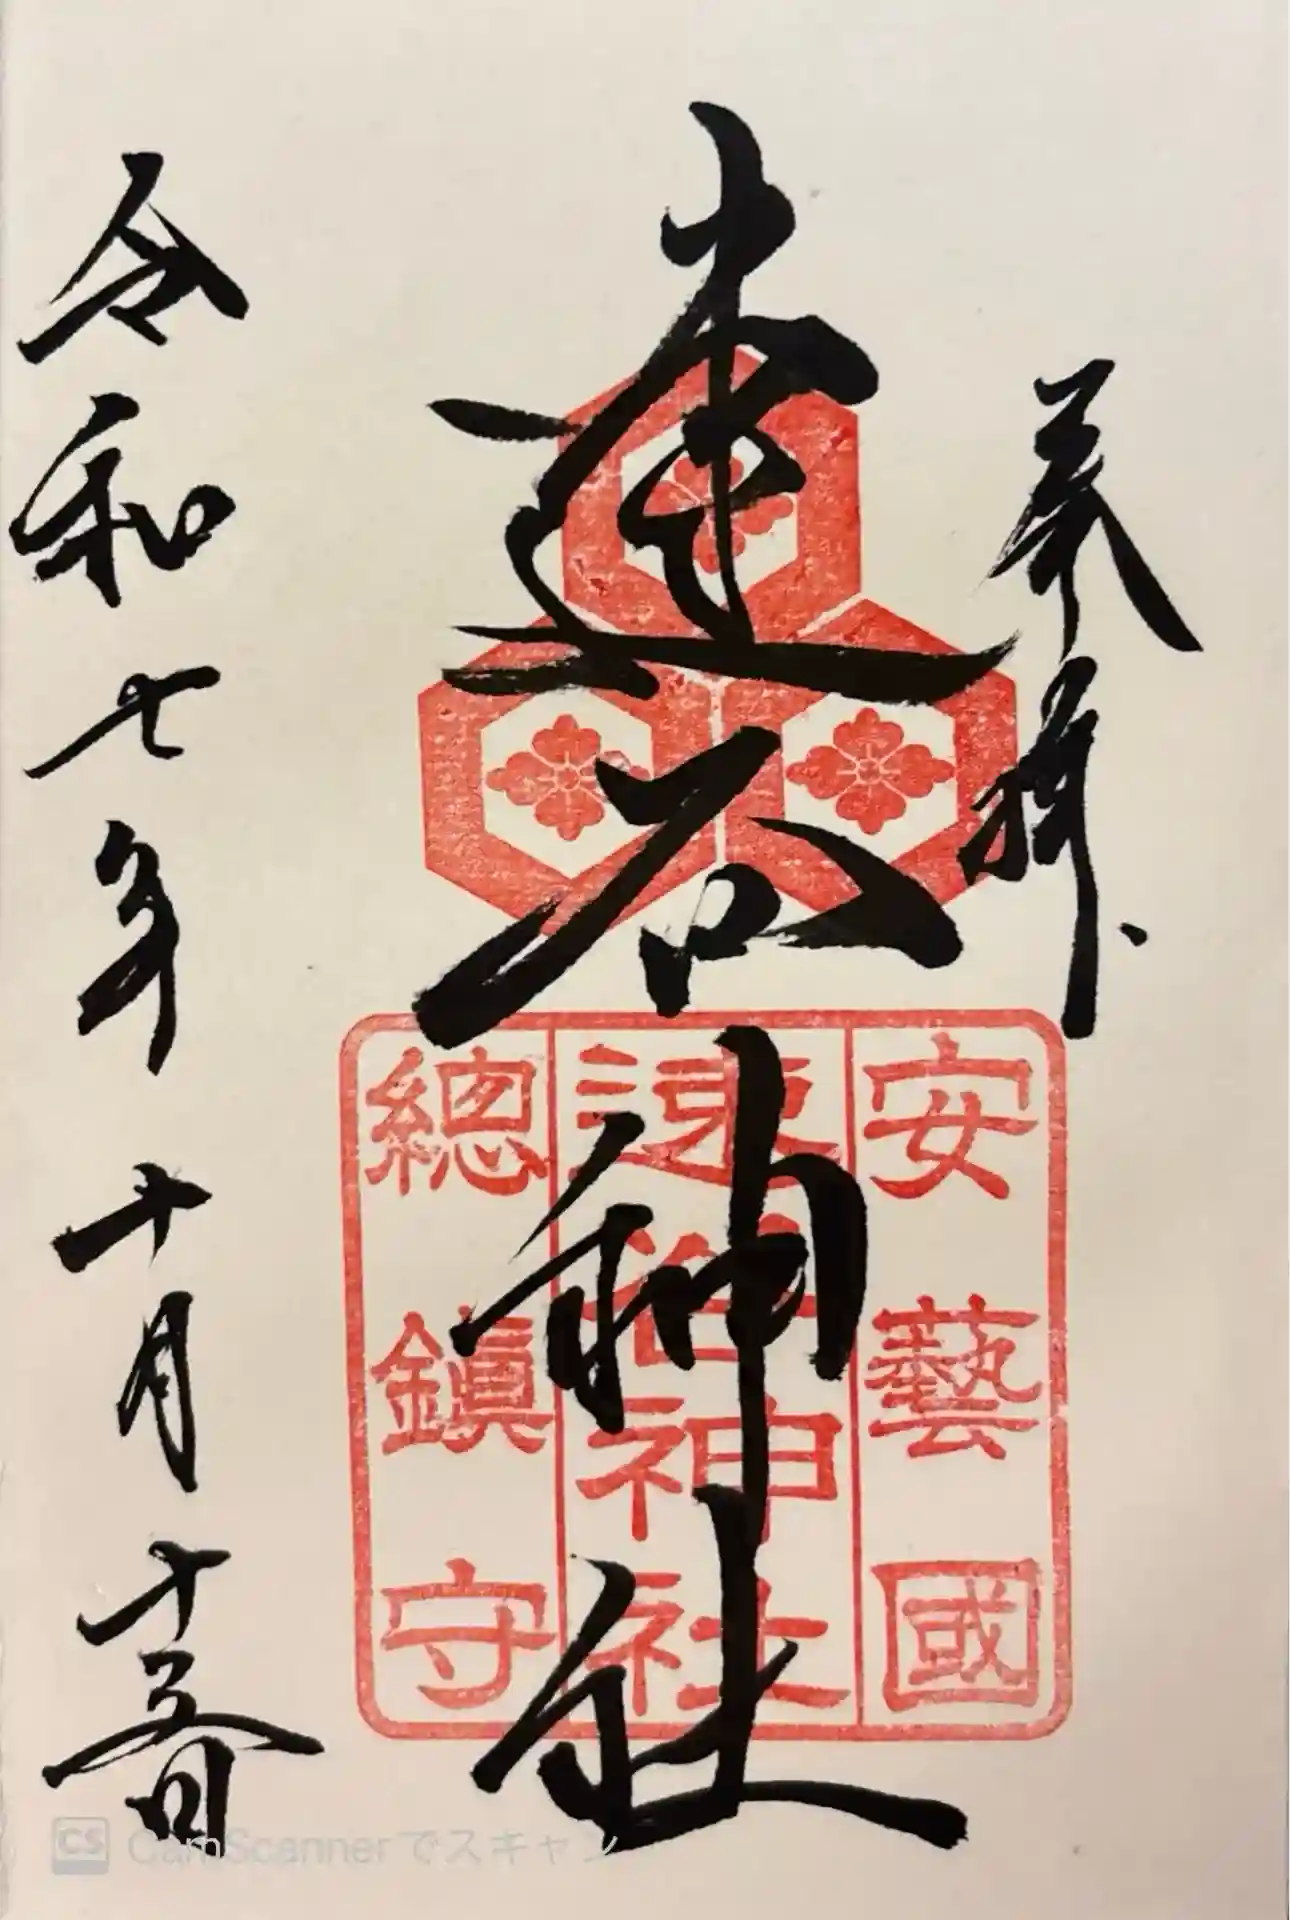 奉拝
速谷神社
安藝國
速谷神社
總鎮守
令和七年 十月 十五日
CamScannerでスキャン